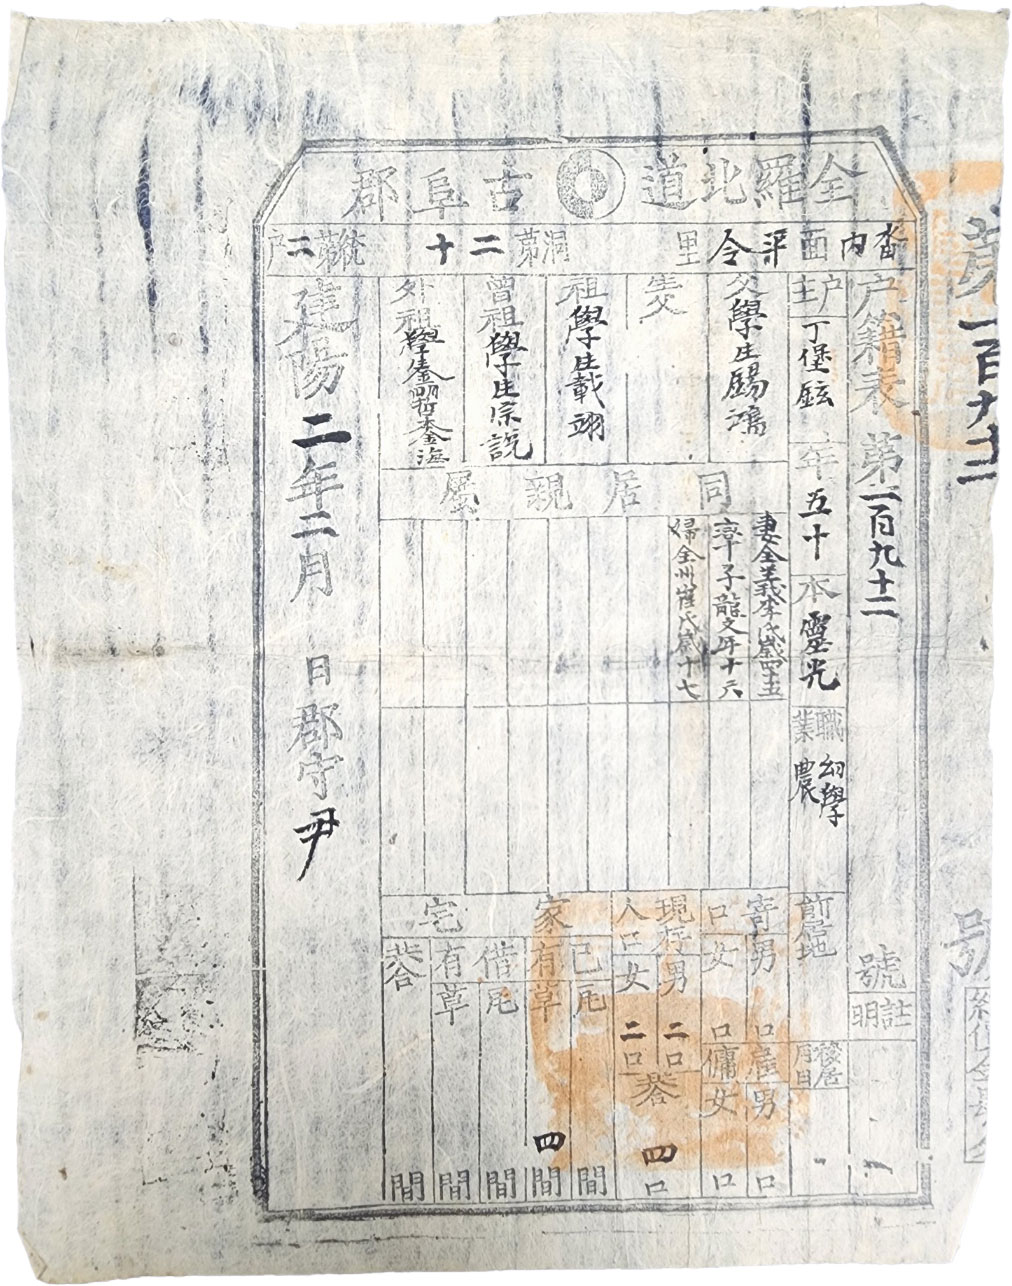 全羅北道 古阜郡
畓內面 平令里 洞第二十 統第二戶
戶籍表 第一百九十二 號
註明
戶主 丁堡鉉 年 五十 本 靈光 職業 幼學 農
前居地
移居月日
父 學生錫鴻
生父
祖 學生載翊
曾祖 學生宗說
外祖
同居親屬
妻全義李氏歲四十五
率子龍文年十六
婦全州崔氏歲十七
寄口 男 口 女 口
雇 男 口
傭 女 口
現存人口 男 二口 女 二口 共合 四口
家宅
己有 瓦 間
草 四間
借有 瓦 間
草 間
共合 間
建陽二年二月 日 郡守 尹
第一百九十二
號